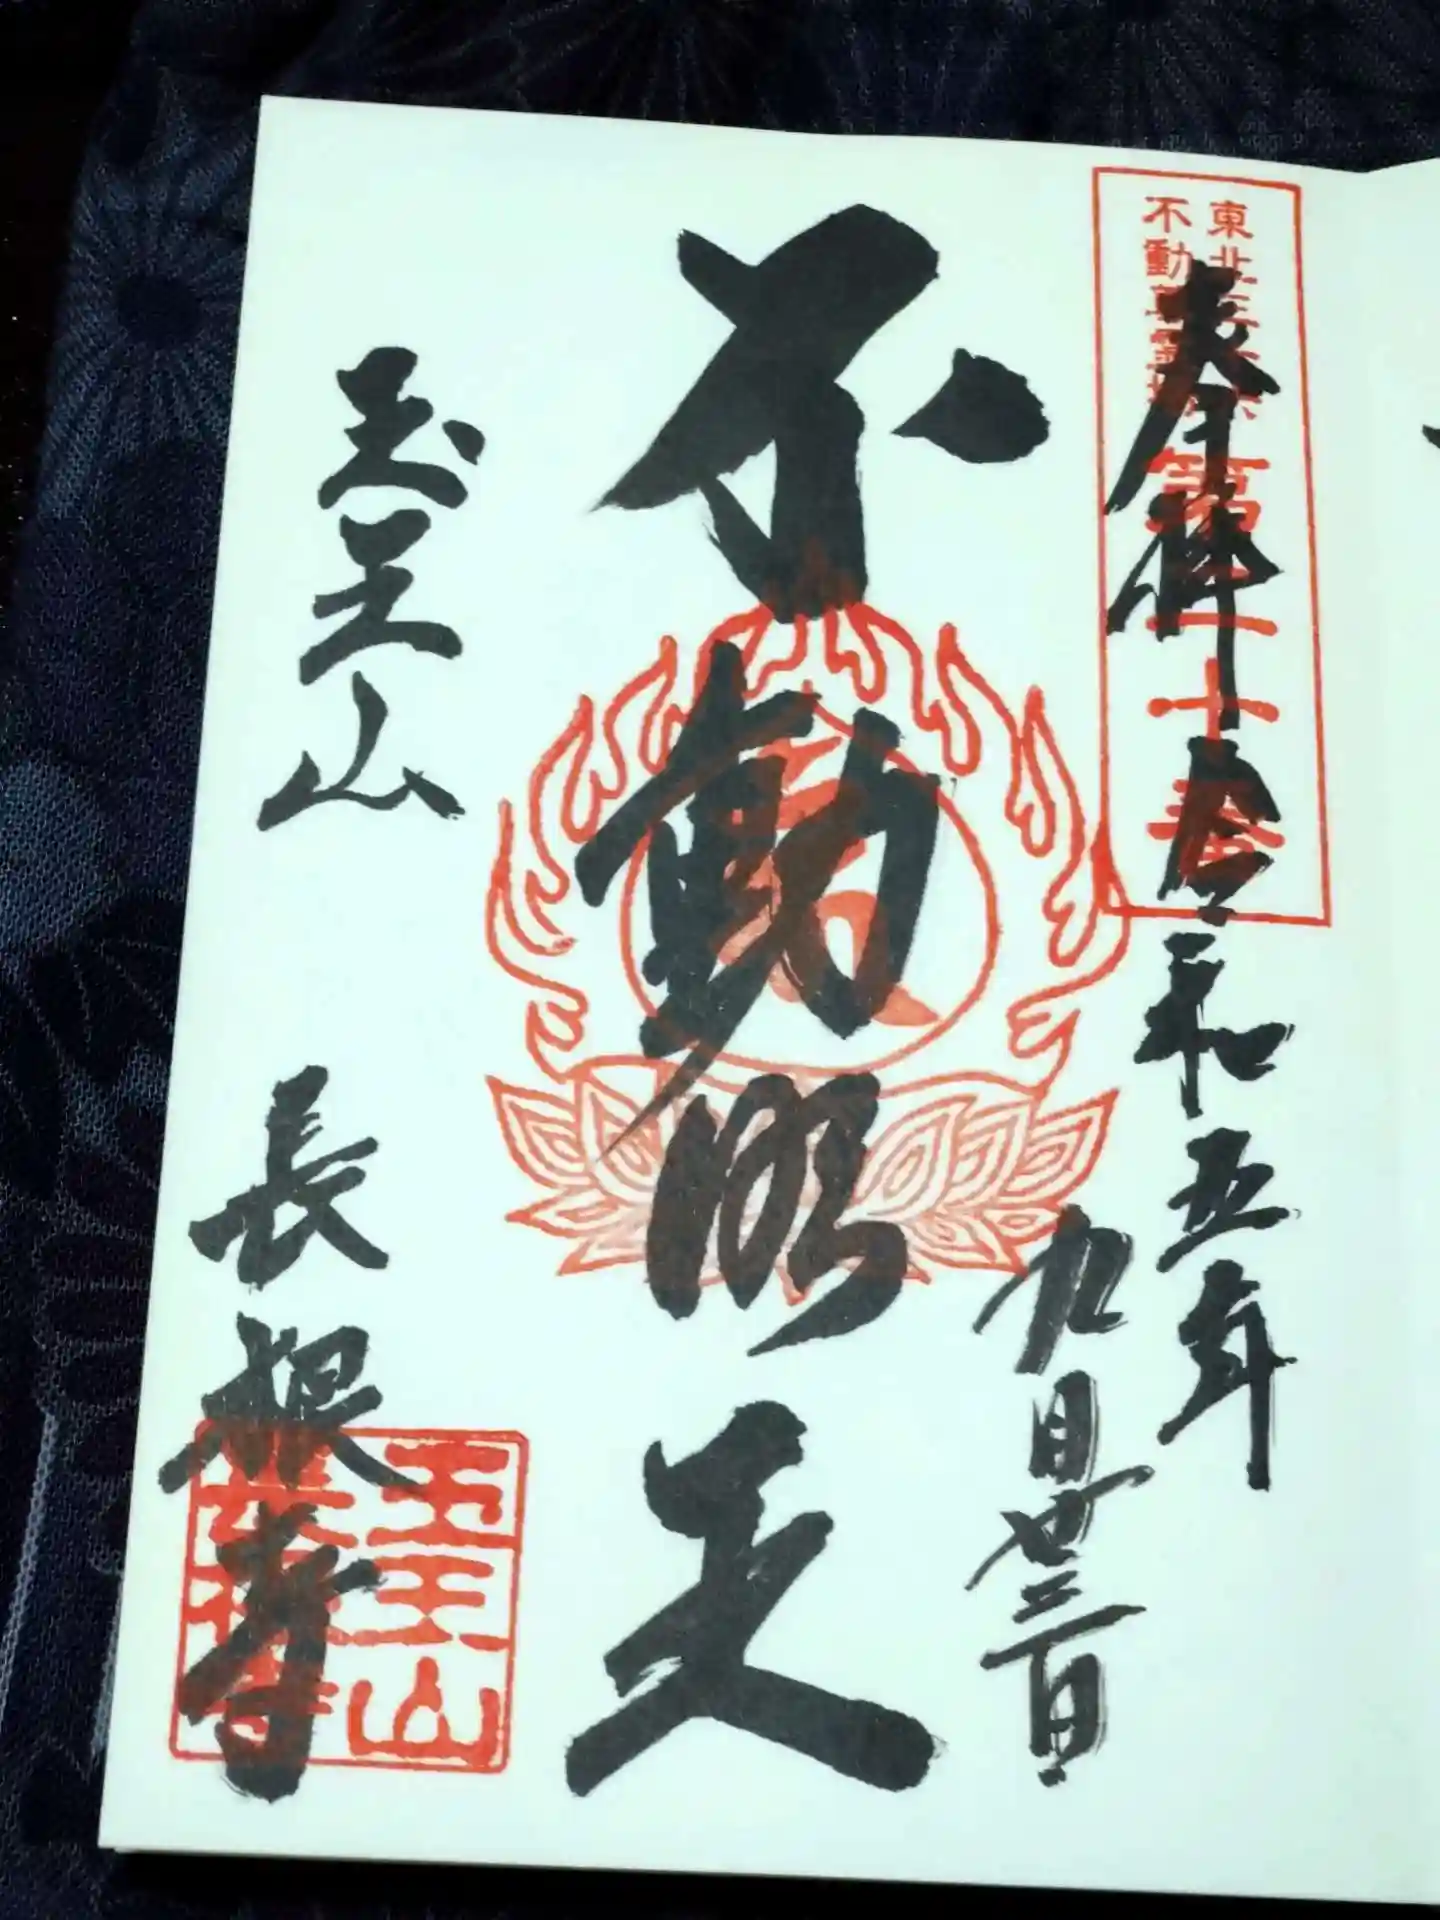 東北三十六
不動尊霊場
第二十番
奉拝
令和五年
九月廿三日
不動明王
玉王山
長根寺
玉王山
長根寺